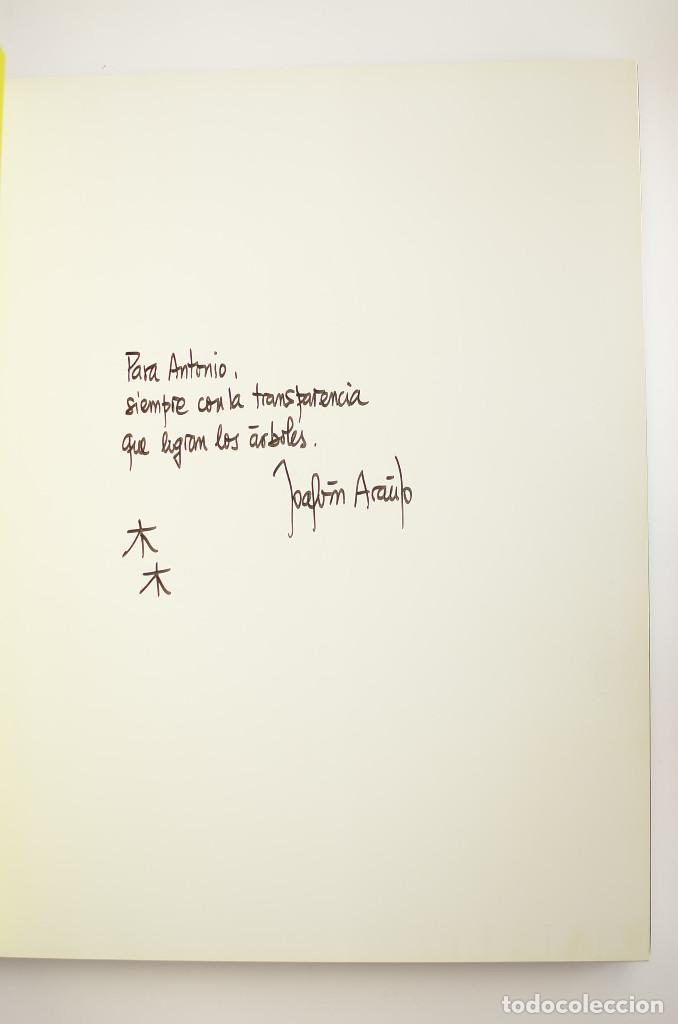 Para Antonio,
siempre con la transparencia
que logran los árboles.
Joaquín Araújo
木
木
todocoleccion